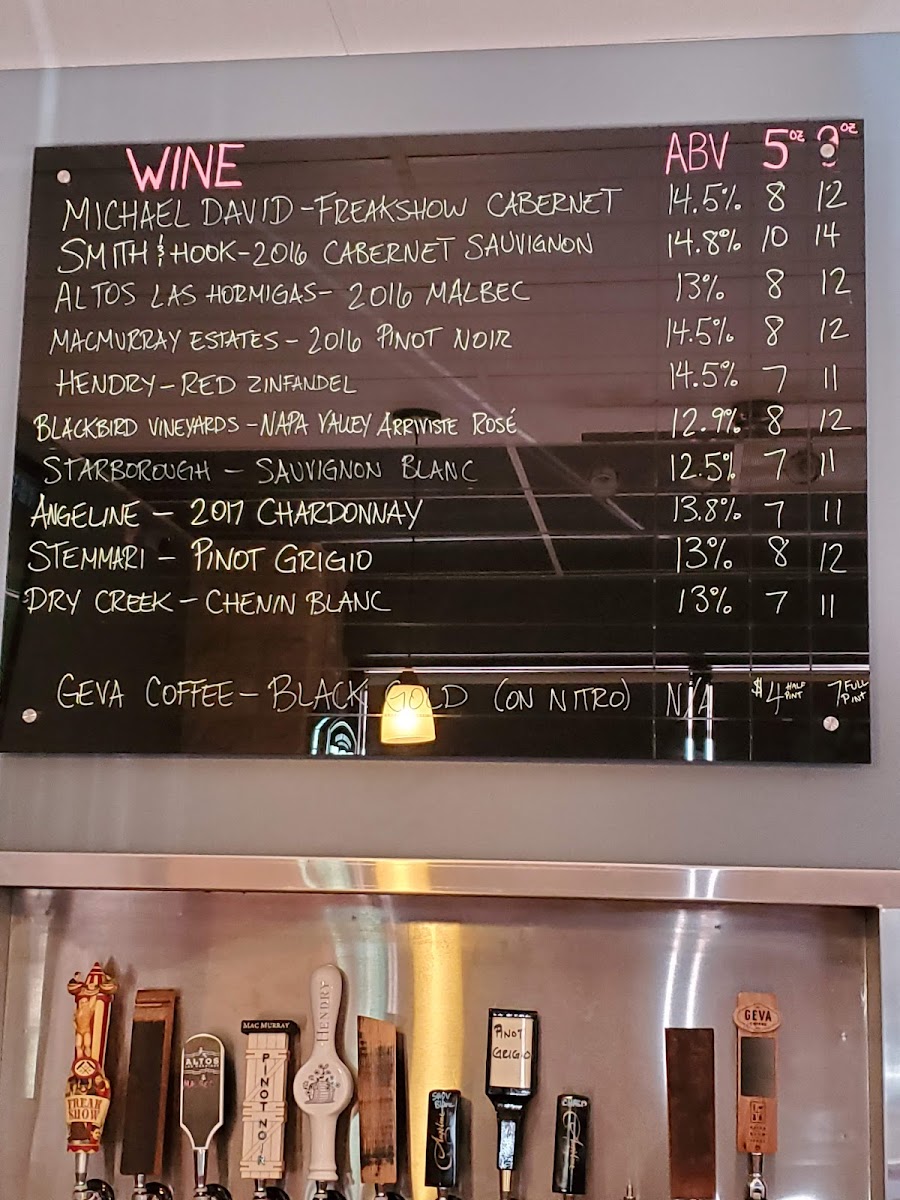 WINE ABV 5oz oz
MICHAEL DAVID - FREAKSHOW CABERNET 14.5% 8 12
SMITH & HOOK - 2016 CABERNET SAUVIGNON 14.8% 10 14
ALTOS LAS HORMIGAS - 2016 MALBEC 13% 8 12
MACMURRAY ESTATES - 2016 PINOT NOIR 14.5% 8 12
HENDRY - RED ZINFANDEL 14.5% 7 11
BLACKBIRD VINEYARDS - NAPA VALLEY ARRIVISTE ROSÉ 12.9% 8 12
STARBOROUGH - SAUVIGNON BLANC 12.5% 7 11
ANGELINE - 2017 CHARDONNAY 13.8% 7 11
STEMMARI - PINOT GRIGIO 13% 8 12
DRY CREEK - CHENIN BLANC 13% 7 11
GEVA COFFEE - BLACK GOLD (ON NITRO) N/A $4 HALF PINT 7 FULL PINT
FREAK SHOW
ALTOS
MAC MURRAY
PINOT NOIR
HENDRY
PINOT GRIGIO
GEVA